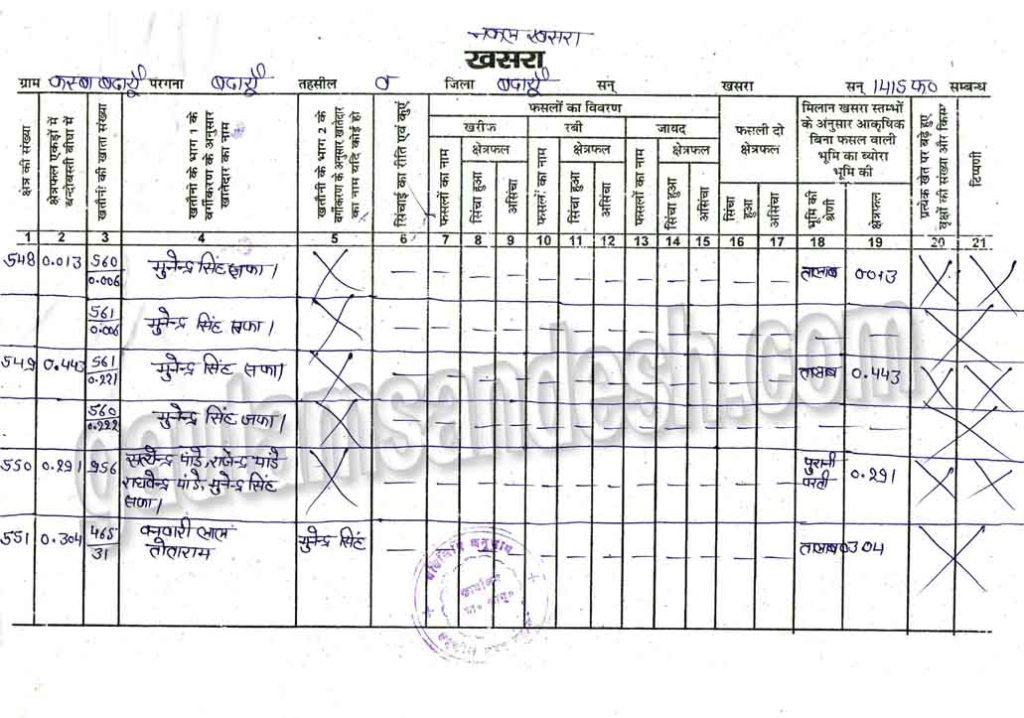 नकल खसरा
खसरा
ग्राम कस्बा बदायूँ परगना बदायूँ तहसील जिला बदायूँ सन् खसरा सन् 1415 फ० सम्बन्ध
क्षेत्र की संख्या
क्षेत्रफल एकड़ों में बन्दोबस्ती बीघा में
खतौनी की खाता संख्या
खतौनी के भाग 1 के वर्गीकरण के अनुसार खातेदार का नाम
खतौनी के भाग 2 के वर्गीकरण के अनुसार खातेदार का नाम यदि कोई हो
सिंचाई का रीति एवं कुएं
फसलों का विवरण
खरीफ रबी जायद
क्षेत्रफल क्षेत्रफल क्षेत्रफल
फसलों का नाम
सिंचा हुआ
असिंचा
फसलों का नाम
सिंचा हुआ
असिंचा
फसलों का नाम
सिंचा हुआ
असिंचा
फसली दो
क्षेत्रफल
सिंचा हुआ
असिंचा
मिलान खसरा स्तम्भों
के अनुसार आकृषिक
बिना फसल वाली
भूमि का ब्योरा
भूमि की
भूमि की श्रेणी
क्षेत्रफल
प्रत्येक खेत पर बढ़े हुए वृक्षों की संख्या और किस्म
टिप्पणी
1 2 3 4 5 6 7 8 9 10 11 12 13 14 15 16 17 18 19 20 21
548 0.013 560 मुनेन्द्र सिंह तालाब 0.013
0.006
561 मुनेन्द्र सिंह
0.006
549 0.443 561 मुनेन्द्र सिंह तालाब 0.443
0.221
560 मुनेन्द्र सिंह
0.222
550 0.291 956 सत्येन्द्र पांडे, राजेन्द्र पांडे पुरानी परती 0.291
राघवेन्द्र पांडे, मुनेन्द्र सिंह
551 0.304 465 बनवारी लाल मुनेन्द्र सिंह तालाब 0304
31 तोताराम
qadamsandesh.com